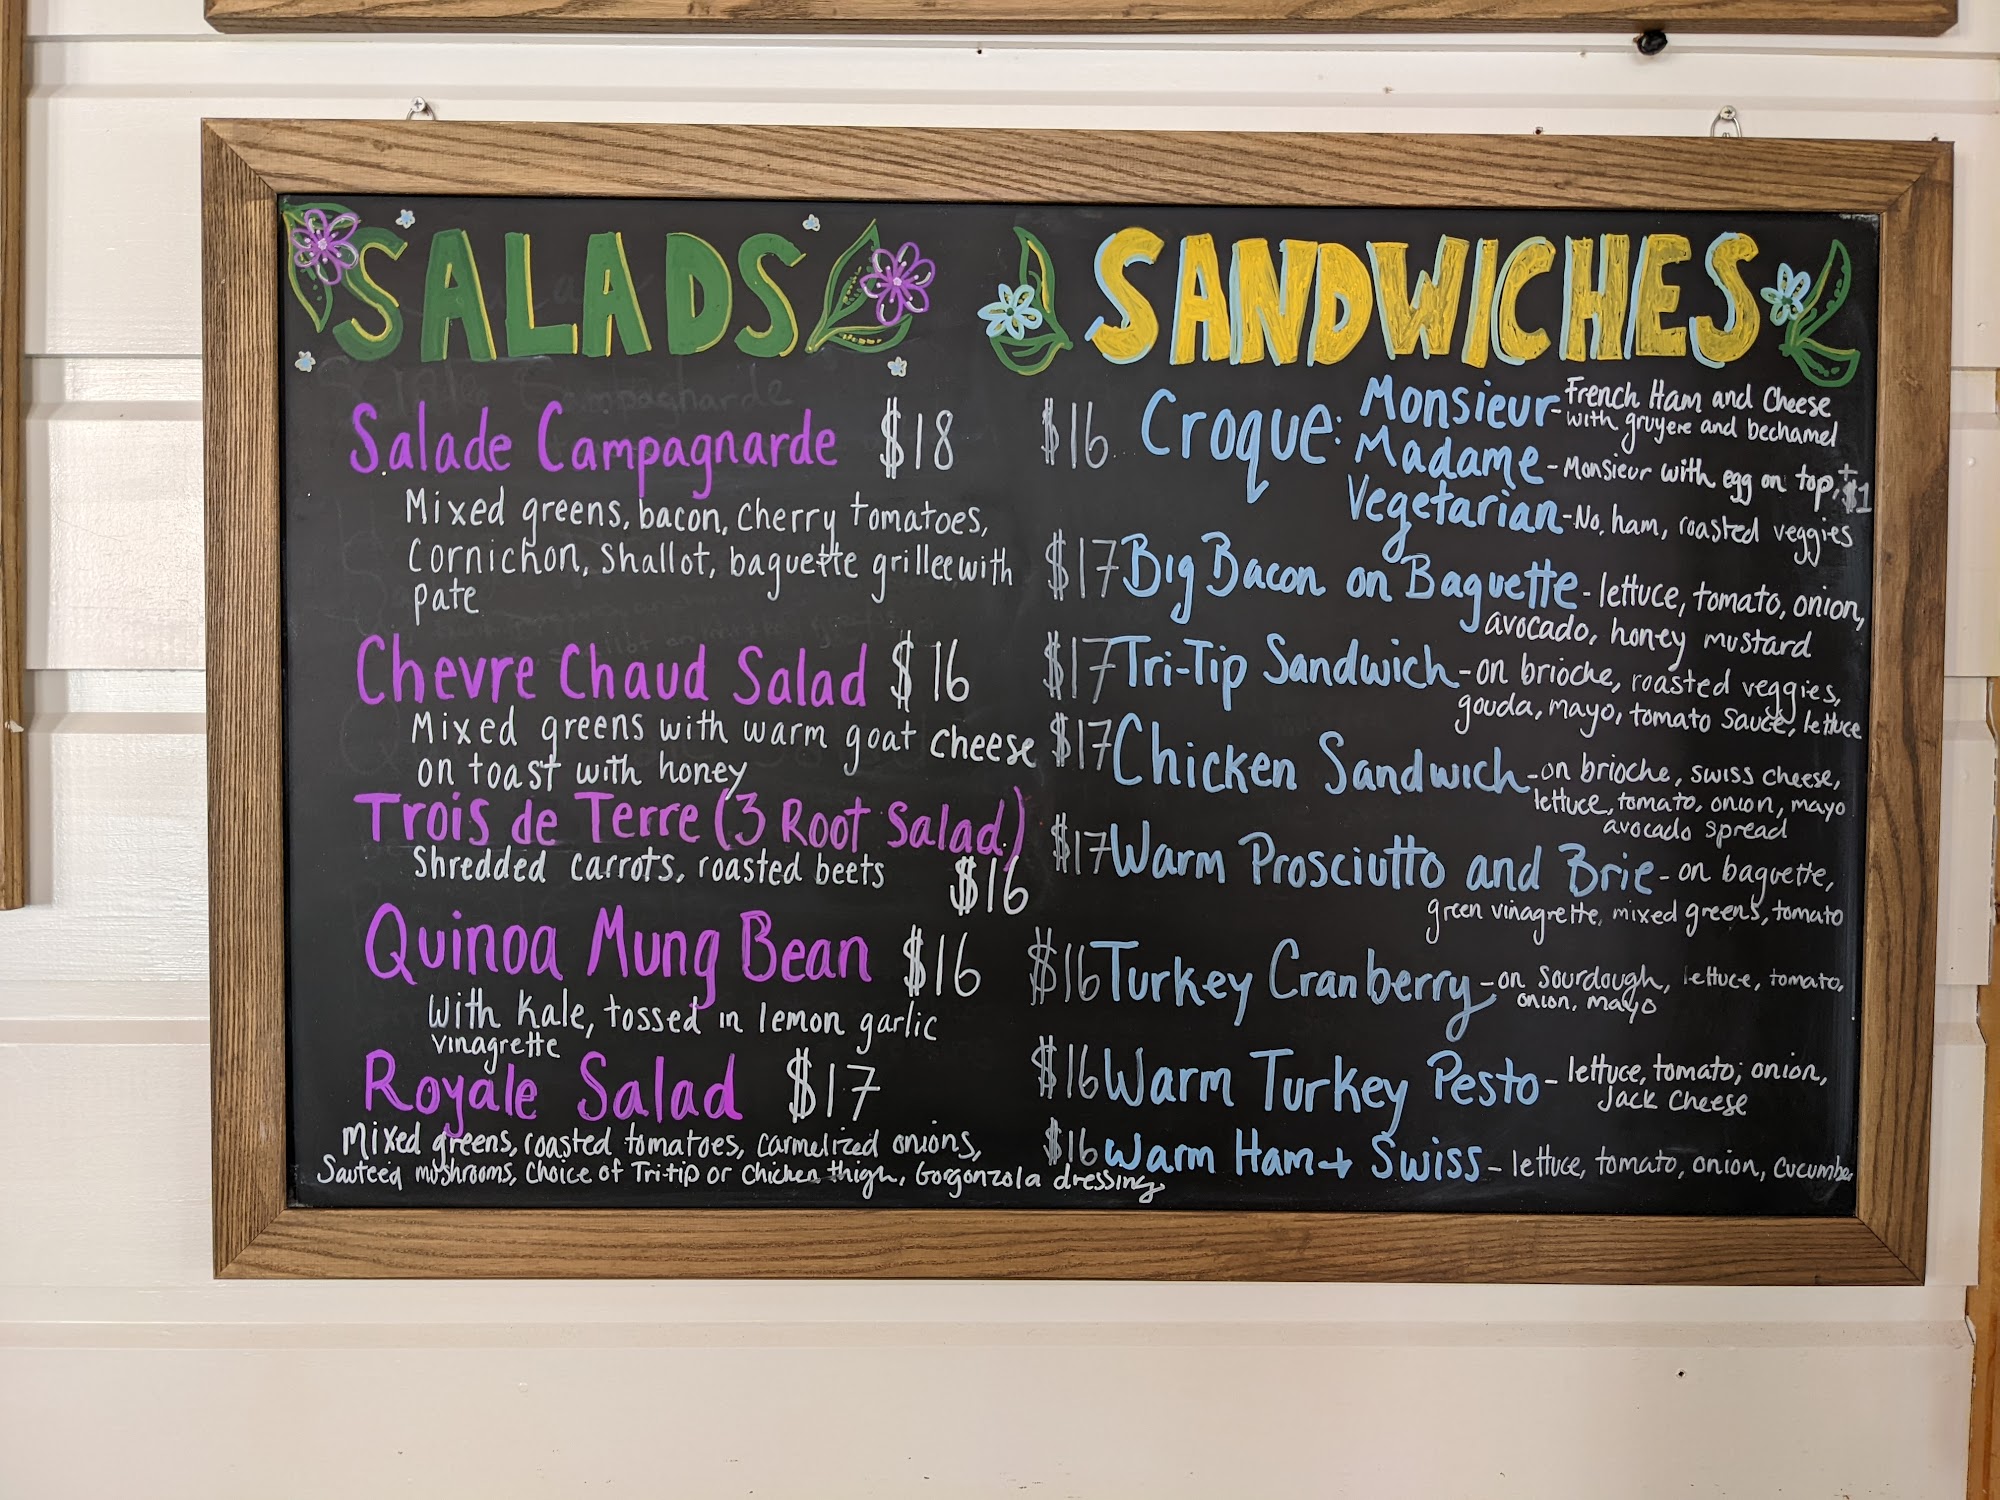 SALADS
Salade Campagnarde $18
Mixed greens, bacon, cherry tomatoes,
Cornichon, shallot, baguette grillee, with
pate
Chevre Chaud Salad $16
Mixed greens with warm goat cheese
on toast with honey
Trois de Terre (3 Root Salad)
Shredded carrots, roasted beets
$16
Quinoa Mung Bean $16
With Kale, tossed in lemon garlic
vinagrette
Royale Salad $17
Mixed greens, roasted tomatoes, carmelized onions,
Sauteed mushrooms, Choice of Tri-tip or Chicken thigh, Gorgonzola dressing
SANDWICHES
$16 Croque: Monsieur - French Ham and Cheese
with gruyere and bechamel
Madame - Monsieur with egg on top, + $1
Vegetarian - No, ham, roasted veggies
$17 Big Bacon on Baguette - lettuce, tomato, onion,
avocado, honey mustard
$17 Tri-Tip Sandwich - on brioche, roasted veggies,
gouda, mayo, tomato sauce, lettuce
$17 Chicken Sandwich - on brioche, swiss cheese,
lettuce, tomato, onion, mayo
avocado spread
$17 Warm Prosciutto and Brie - on baguette,
green vinagrette, mixed greens, tomato
$16 Turkey Cranberry - on sourdough, lettuce, tomato,
onion, mayo
$16 Warm Turkey Pesto - lettuce, tomato, onion,
Jack Cheese
$16 Warm Ham + Swiss - lettuce, tomato, onion, cucumber